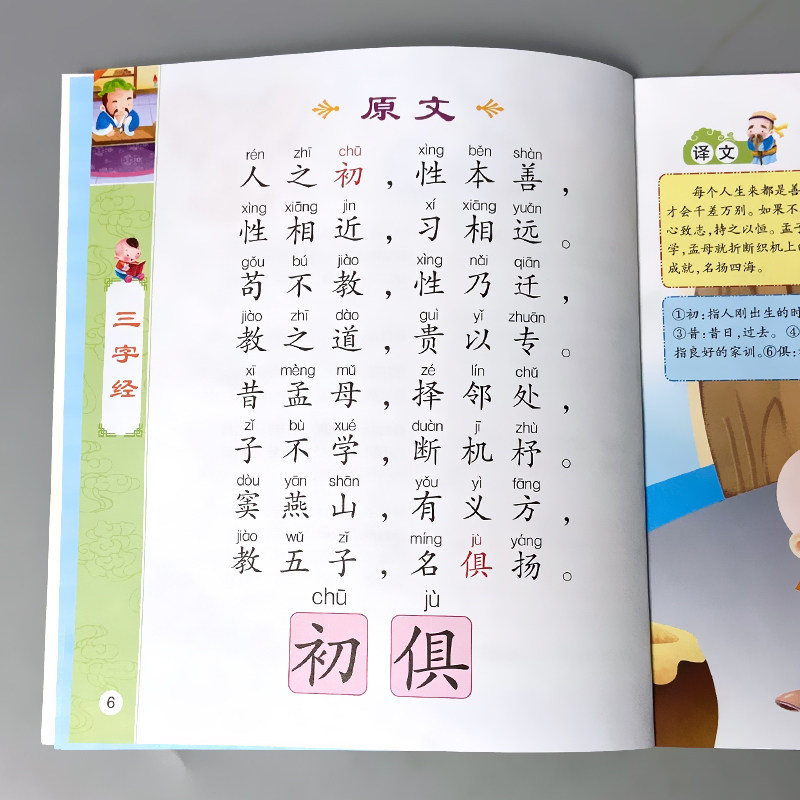 原文
rén zhī chū xìng běn shàn
人之初，性本善，
xìng xiāng jìn xí xiāng yuǎn
性相近，习相远。
gǒu bú jiào xìng nǎi qiān
苟不教，性乃迁，
jiào zhī dào guì yǐ zhuān
教之道，贵以专。
xī mèng mǔ zé lín chǔ
昔孟母，择邻处，
zǐ bù xué duàn jī zhù
子不学，断机杼。
dòu yān shān yǒu yì fāng
窦燕山，有义方，
jiào wǔ zǐ míng jù yáng
教五子，名俱扬。
chū jù
初 俱
三字经
6
译文
每个人生来都是善
才会千差万别。如果不
心致志，持之以恒。孟子
学，孟母就折断织机上的
成就，名扬四海。
①初：指人刚出生的时
③昔：昔日，过去。④
指良好的家训。⑥俱：